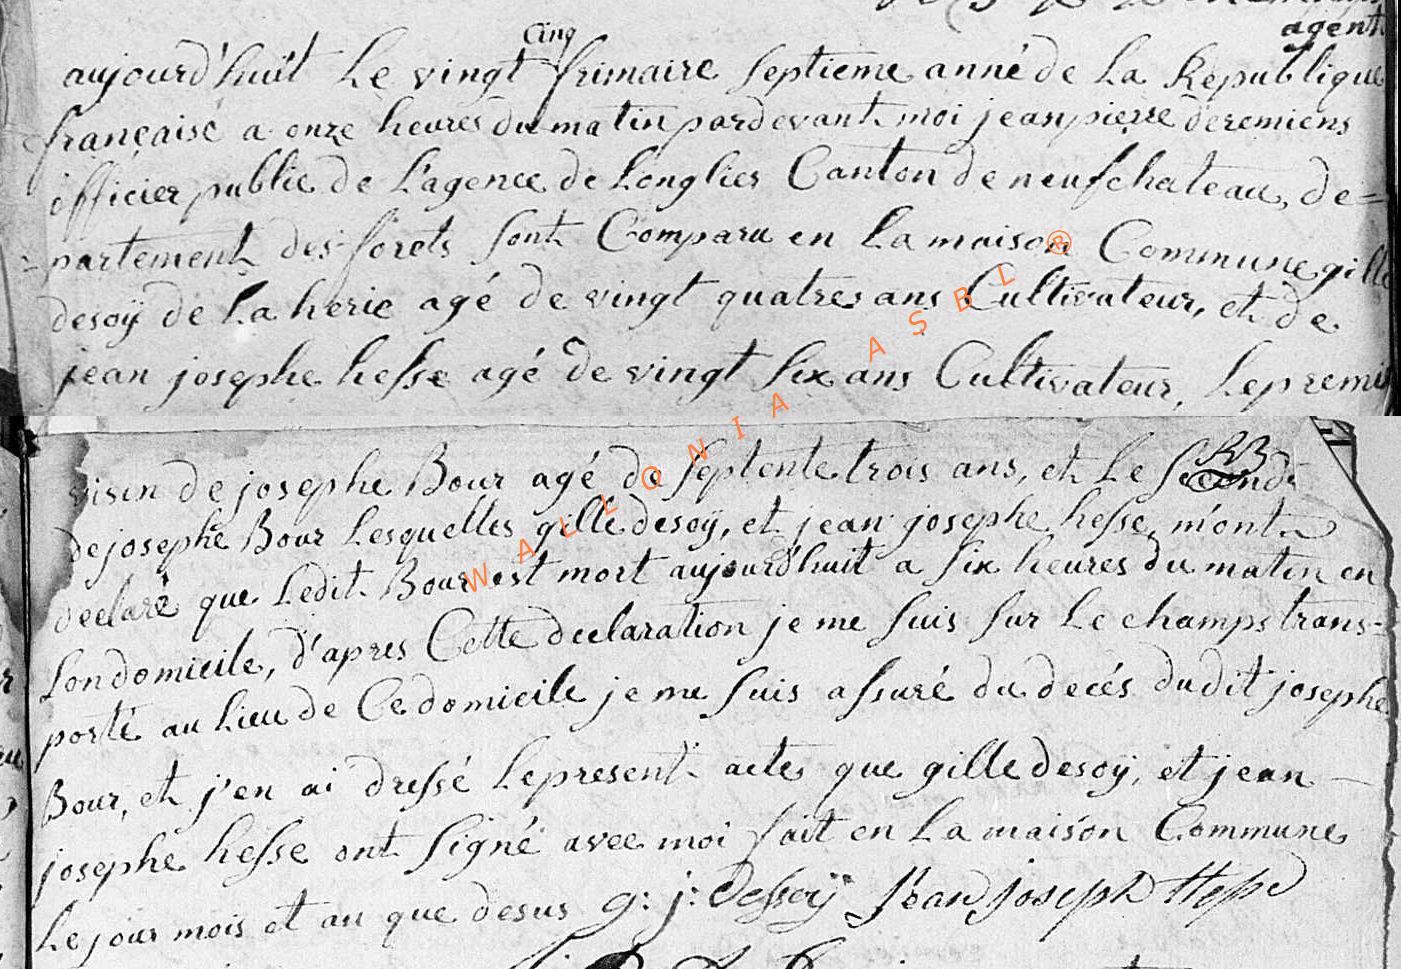 agent
cinq
aujourd'huit Le vingt frimaire septieme anné de La Republique
française a onze heures du matin pardevant moi jean pierre deremiens
officier public de L'agence de Longlier Canton de neufchateau, de=
=partement des forets sont Comparu en La maison Commune gille
desoÿ de La herie agé de vingt quatres ans Cultivateur, et de
jean josephe hesse agé de vingt six ans Cultivateur, Le premi
voisin de josephe Bour agé de septente trois ans, et Le second
de josephe Bour Lesquelles gille desoÿ, et jean josephe hesse, m'ont
declaré que Ledit Bour est mort aujourd'huit a six heures du matin en
son domicile, d'apres Cette declaration je me suis sur Le champs trans-
porté au Lieu de Ce domicile je me suis assuré du decés dudit josephe
Bour, et j'en ai dressé Le present acte que gille desoÿ, et jean
josephe hesse ont signé avec moi fait en La maison Commune
Le jour mois et an que desus g: j: Dessoÿ Jean Joseph Hesse
WALLONIA ASBL ®